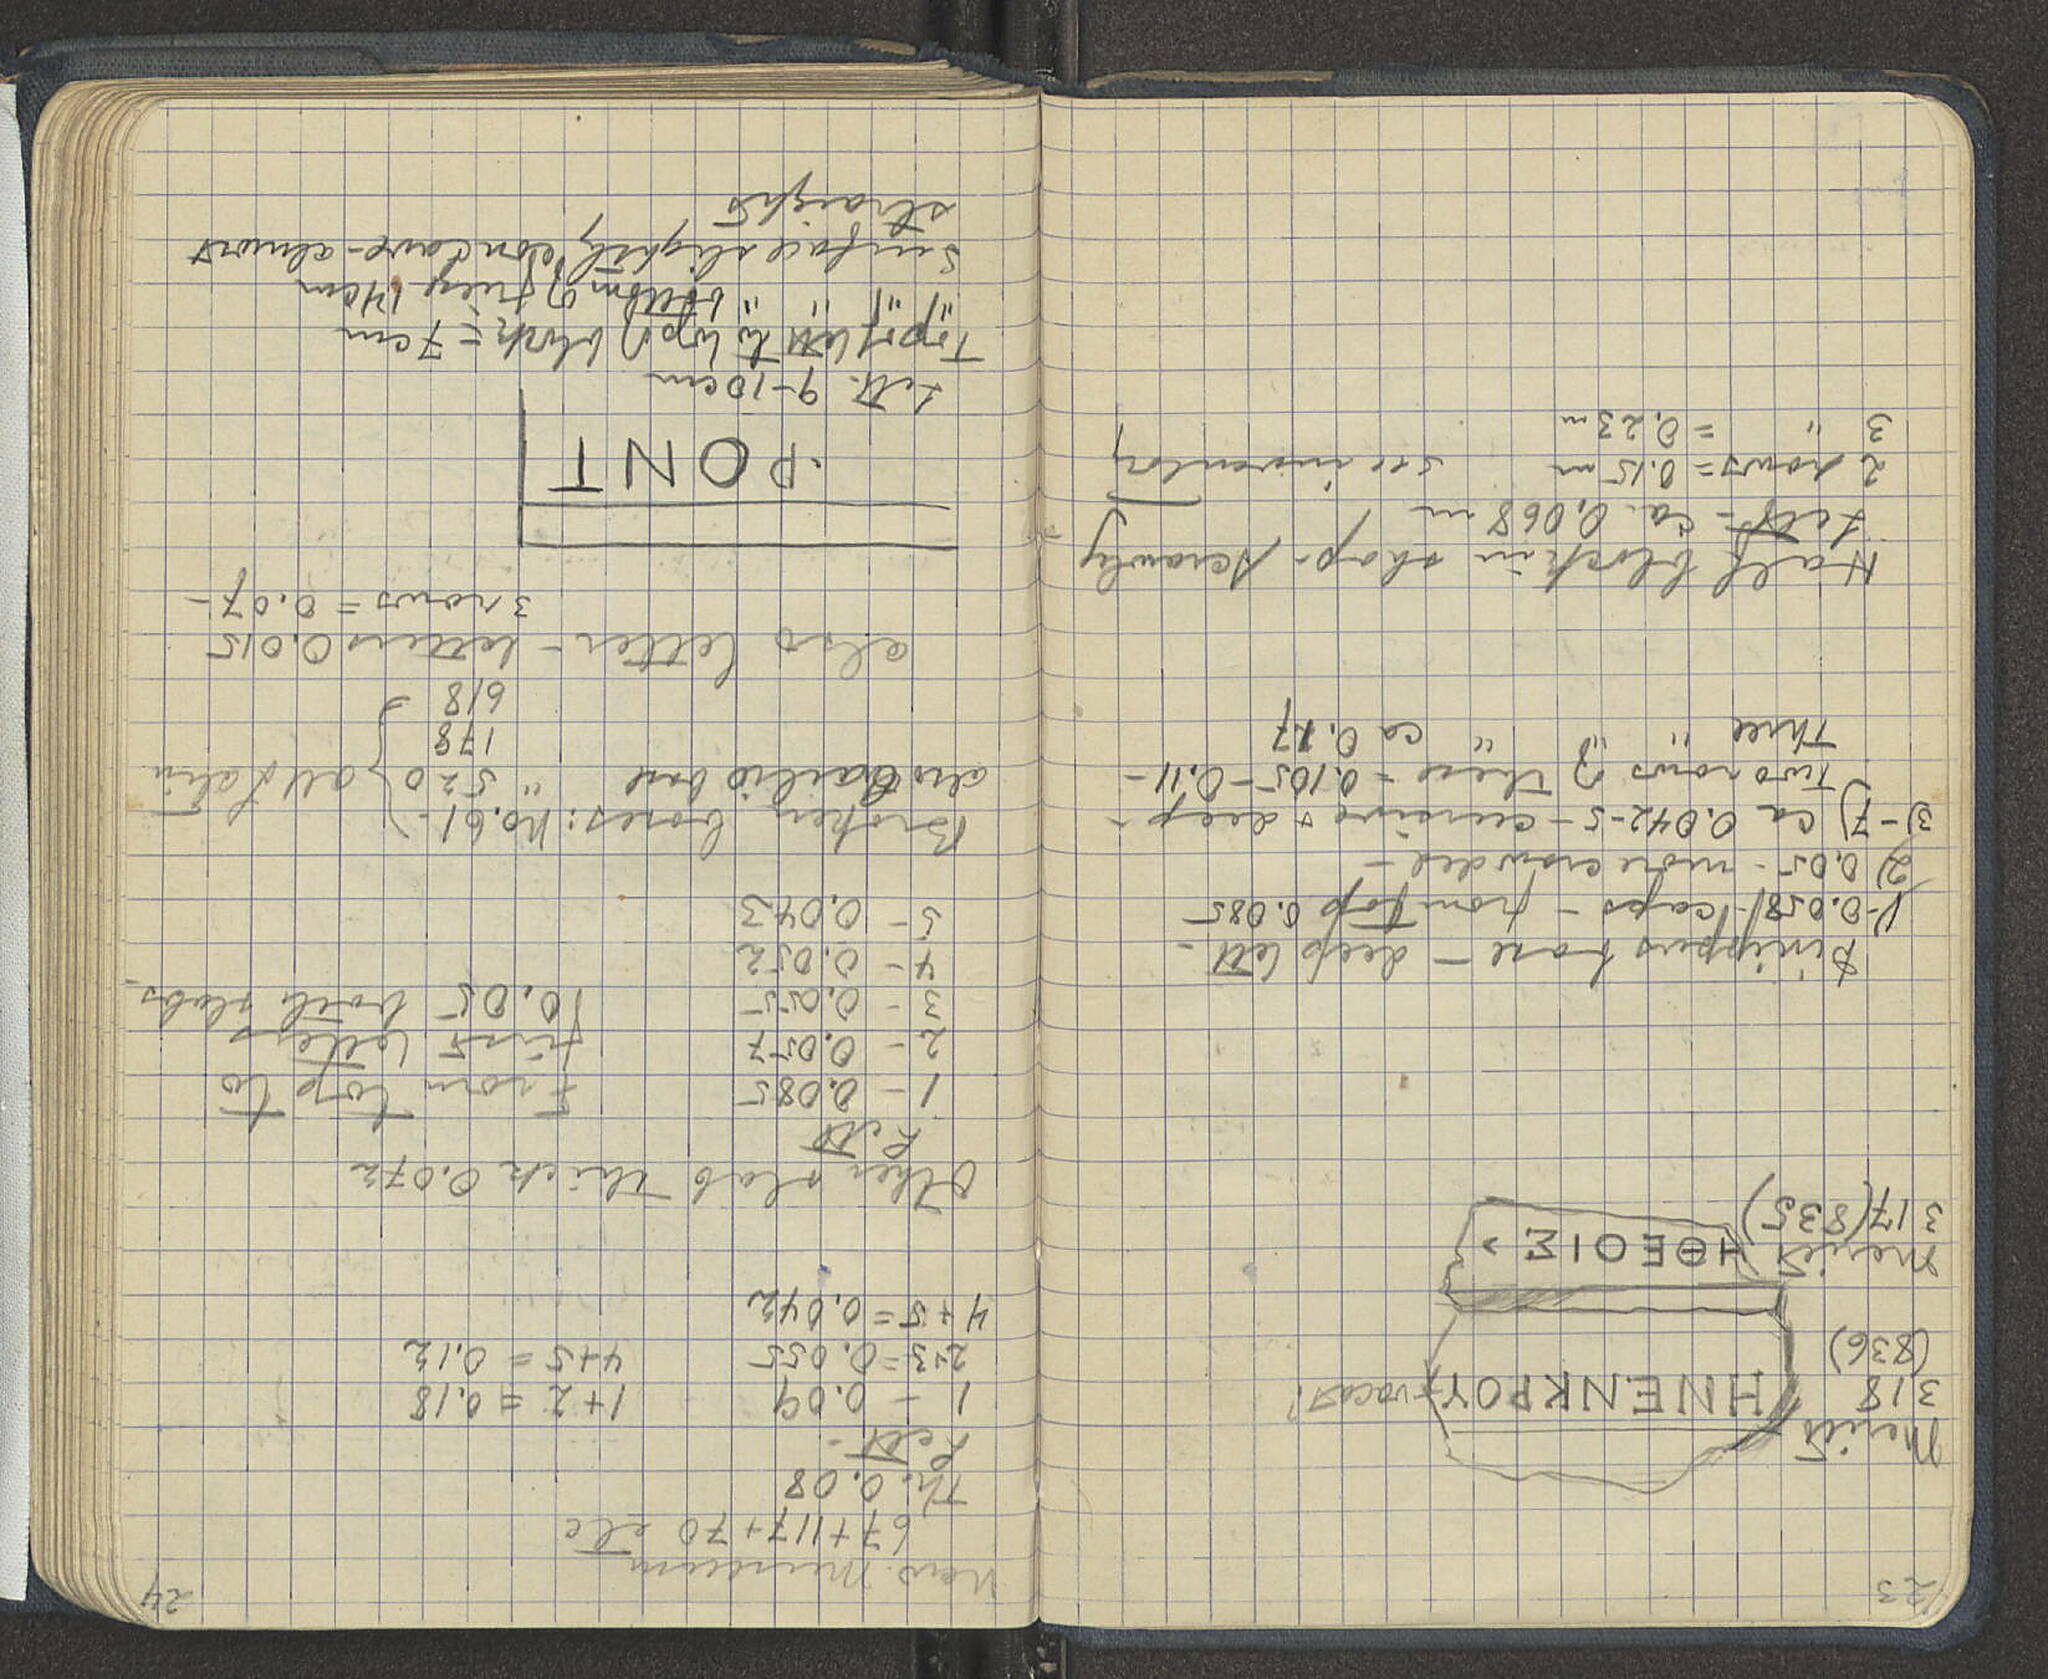 23
Merit
318
(836)
HNENKPOY - vacat!
Merit
317 (835)
HΘEOIΣ >
Dinippus base - deep lett -
1 - 0.058 - caps - from top 0.085
2) 0.05 - more crowded -
3) - 7) ca 0.042-5 - cursive + deep -
Two rows of these - 0.105 - 0.11 -
Three " " " ca 0.17
Half block in shop - scrawly
Lett - ca. 0.068 m
2 rows = 0.15 m see inventory
3 " = 0.23 m
24
New Museum
67 + 117 + 70 etc
Th. 0.08
Lett -
1 - 0.09 1+2 = 0.18
2+3 = 0.055 4+5 = 0.12
4+5 = 0.042
Other slab thick 0.072
Lett
1 - 0.085 From top to
2 - 0.057 first letters
3 - 0.055 0.05 both slabs -
4 - 0.052
5 - 0.043
Broken boxes: No. 61 -
also Bailio base " 520 all Latin
178
618
also letter - letters 0.015
3 rows = 0.07 -
·PONT
Lett. 9-10 cm
Top of lett to top of block = 7 cm
" " " " bottom of fillet 14 cm
Surface slightly concave - almost
straight